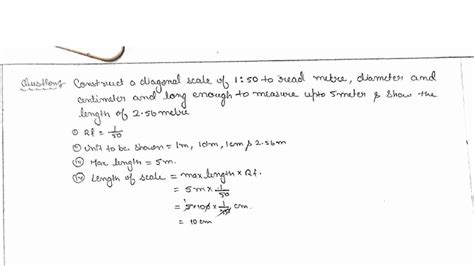 Question:- Construct a diagonal scale of 1:50 to read metre, diameter and
centimeter and long enough to measure upto 5meter & show the
length of 2.56 metre
① Rf = 1/50
② Unit to be shown = 1m, 1dm, 1cm & 2.56m
③ Max length = 5m.
④ Length of scale = max length × Rf.
= 5m × 1/50
= 5×100 × 1/50 cm.
= 10cm